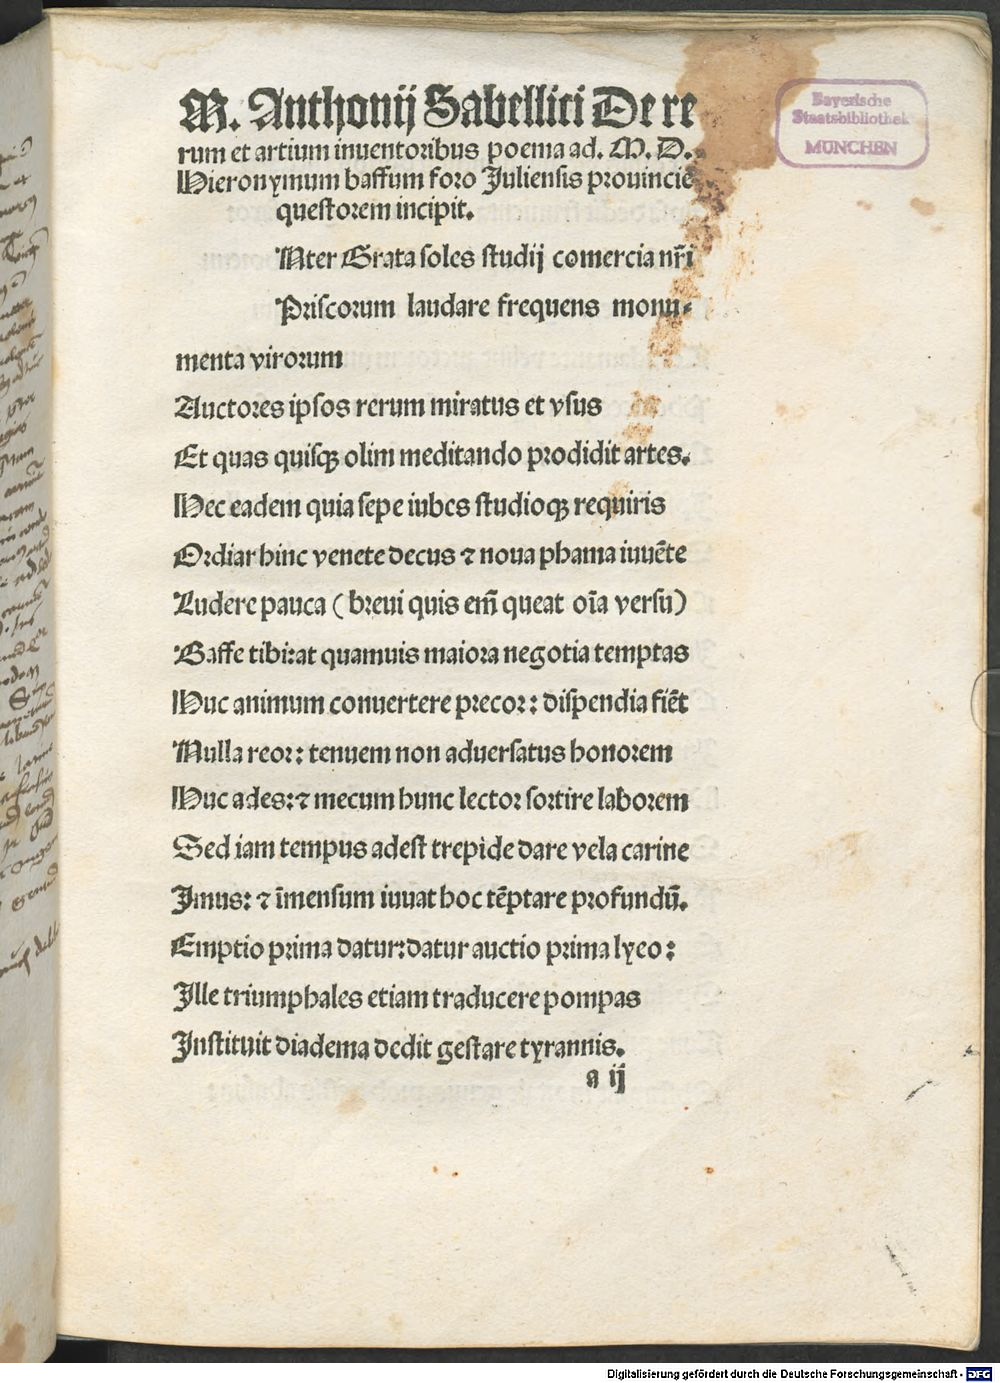 M. Anthonij Sabellici De re
rum et artium inuentoribus poema ad. M. D.
Hieronymum baffum foro Juliensis prouincie
questorem incipit.
Nter Grata soles studij comercia nr̃i
Priscorum laudare frequens monu⸗
menta virorum
Auctores ipsos rerum miratus et vsus
Et quas quisqꝫ olim meditando prodidit artes.
Hec eadem quia sepe iubes studioqꝫ requiris
Ordiar hinc venete decus ⁊ noua phama iuuẽte
Ludere pauca (breui quis em̃ queat oĩa versu)
Baffe tibi:at quamuis maiora negotia temptas
Huc animum conuertere precor: dispendia fiẽt
Nulla reor: tenuem non aduersatus honorem
Huc ades:⁊ mecum hunc lector sortire laborem
Sed iam tempus adest trepide dare vela carine
Imus: ⁊ ĩmensum iuuat hoc tẽptare profundũ.
Emptio prima datur:datur auctio prima lyeo:
Ille triumphales etiam traducere pompas
Instituit diadema dedit gestare tyrannis.
a ij
Bayerische
Staatsbibliothek
MÜNCHEN
Digitalisierung gefördert durch die Deutsche Forschungsgemeinschaft - DFG